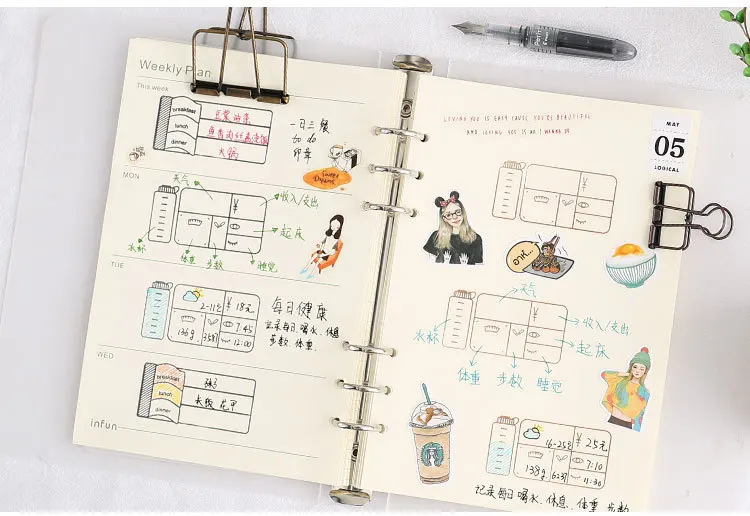 Weekly Plan
This week
breakfast
豆浆 油条
lunch
鱼香肉丝盖浇饭
dinner
火锅
一日三餐
to do
印章
Sweet Dreams
MON
天气
¥
收入/支出
起床
水杯
体重
步数
睡觉
TUE
2-11℃
¥ 18元
7:45
136g
3581
12:00
每日健康
记录每日喝水、休息
步数、体重.
WED
breakfast
粥
lunch
dinner
infun
LOVING YOU IS EASY CAUSE YOU'RE BEAUTIFUL
AND LOVING YOU IS ALL I WANNA DO
MAY
05
LOGICAL
¥
天气
¥
收入/支出
水杯
起床
体重
步数
睡觉
16-25℃
¥ 25元
7:10
138g
6237
11:30
记录每日喝水、休息、体重 步数